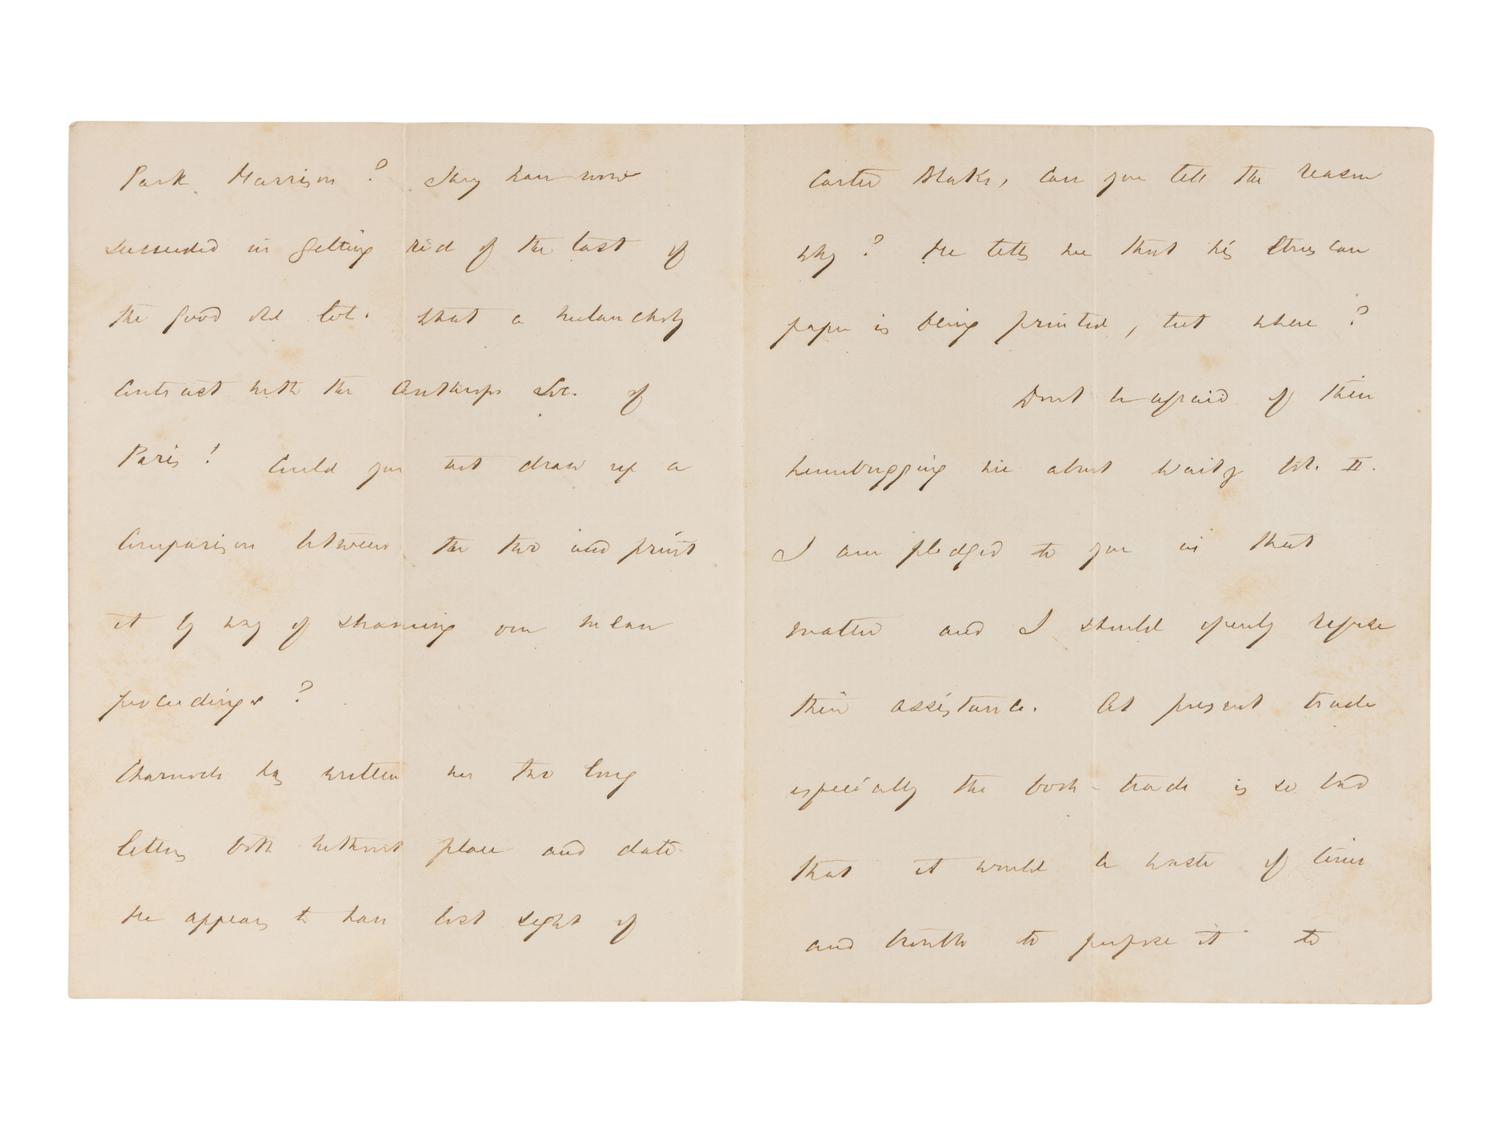 Park Harrison? They have now
succeeded in getting rid of the last of
the good old lot. What a melancholy
contrast with the Anthrop. Soc. of
Paris! Could you not draw up a
comparison between the two and print
it by way of shaming our mean
proceedings?
Charnock has written me two long
letters both without place and date
He appears to have lost sight of
Carter Blake, Can you tell the reason
why? He tells me that his Etruscan
paper is being printed, but where?
Dont be afraid of their
humbugging me about Waitz Vol. II.
I am pledged to you in that
matter and I should openly refuse
their assistance. At present trade
especially the book-trade is so bad
that it would be waste of time
and trouble to purpose it to